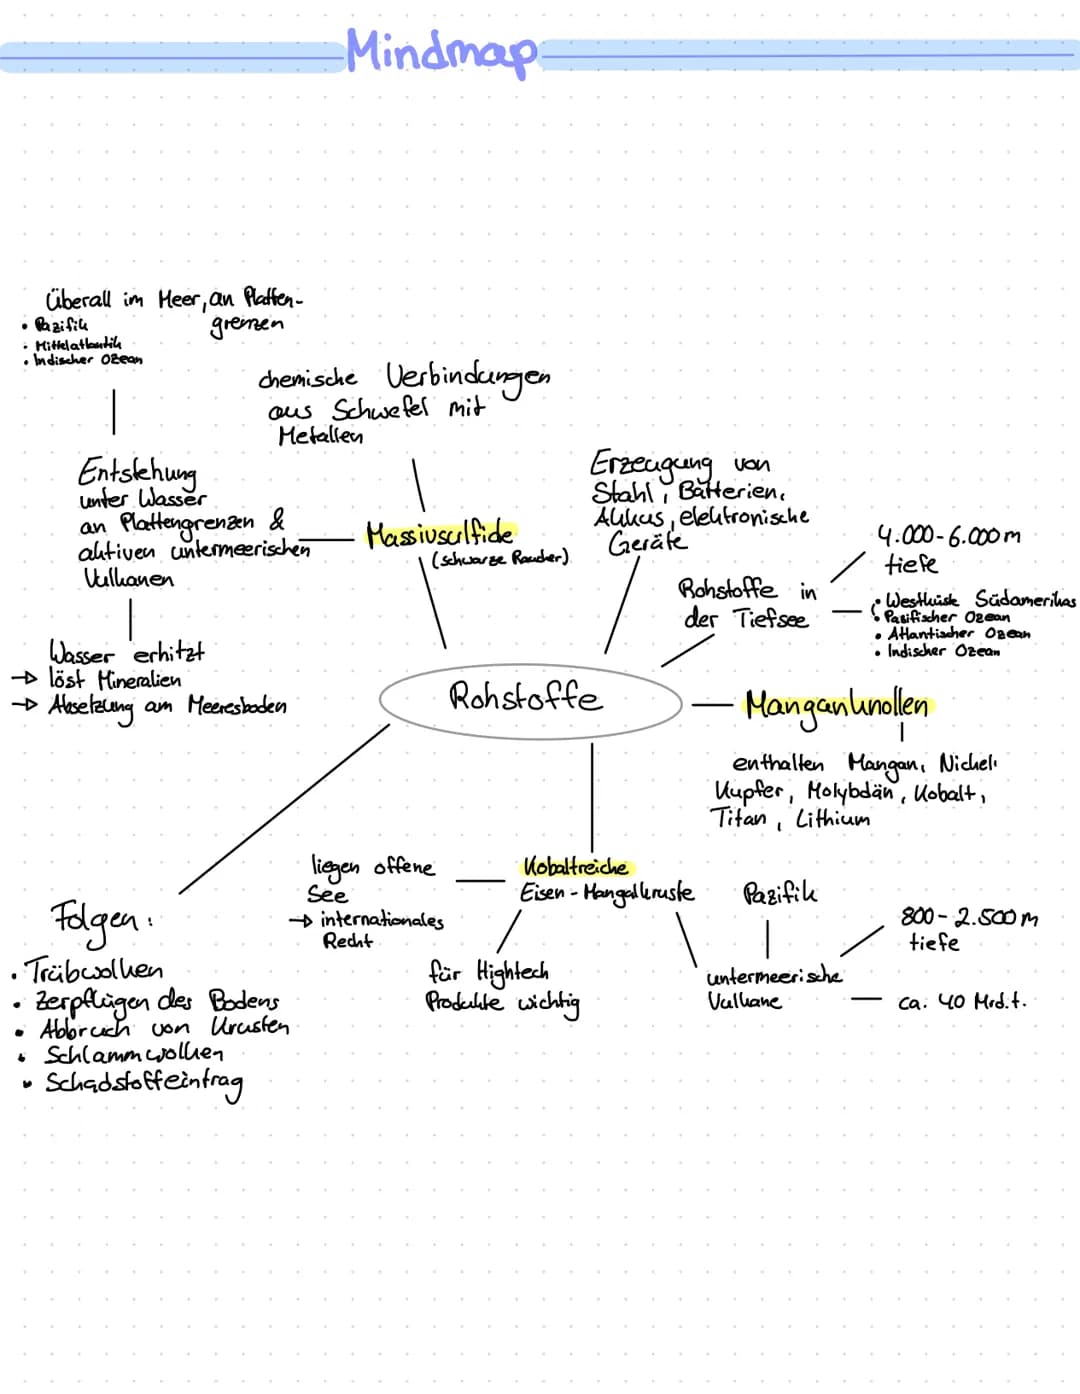 Mindmap
Überall im Meer, an Platten-
grenzen
• Pazifik
• Mittelatlantik
• Indischer Ozean
chemische Verbindungen
aus Schwefel mit
Metallen
Entstehung
unter Wasser
an Plattengrenzen &
aktiven untermeerischen
Vulkanen
Massivsulfide
(schwarze Raucher)
Erzeugung von
Stahl, Batterien,
Akkus, elektronische
Geräte
4.000-6.000m
tiefe
Rohstoffe in
der Tiefsee
• Westküste Südamerikas
• Pasifischer Ozean
• Atlantischer Ozean
• Indischer Ozean
Wasser erhitzt
→ löst Mineralien
→ Absetzung am Meeresboden
Rohstoffe
Manganknollen
enthalten Mangan, Nickel,
Kupfer, Molybdän, Kobalt,
Titan, Lithium
liegen offene
See
→ internationales
Recht
Kobaltreiche
Eisen-Mangankruste
Pazifik
800-2.500m
tiefe
für Hightech
Produkte wichtig
untermeerische
Vulkane
ca. 40 Mrd.t.
Folgen:
• Trübwolken
• Zerpflügen des Bodens
• Abbruch von Krusten
• Schlammwolken
• Schadstoffeintrag